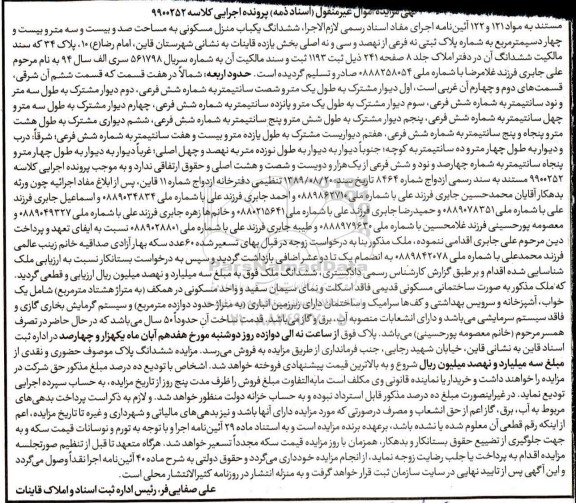 آگهی مزایده اموال غیرمنقول (اسناد ذمه) پرونده اجرایی کلاسه ۹۹۰۰۲۵۲
مستند به مواد ۱۲۱ و ۱۲۲ آئین‌نامه اجرای مفاد اسناد رسمی لازم‌الاجرا، ششدانگ یکباب منزل مسکونی به مساحت صد و بیست و سه متر و بیست و
چهار دسیمترمربع به شماره پلاک ثبتی نه فرعی از نهصد و سی و نه اصلی بخش یازده قاینات به نشانی شهرستان قاین، امام رضا(ع) ۱۰، پلاک ۳۴ که سند
مالکیت ششدانگ آن در دفتر املاک جلد ۸ صفحه ۲۴۱ ذیل ثبت ۱۱۹۳ ثبت و سند مالکیت آن به شماره سریال ۵۶۱۷۹۸ سری الف سال ۹۴ به نام مرحوم
علی جابری فرزند غلامرضا با شماره ملی ۰۸۸۸۲۵۸۰۵۴ صادر و تسلیم گردیده است. حدود اربعه: شمالاً در هفت قسمت که قسمت ششم آن شرقی،
قسمت‌های دوم و چهارم آن غربی است، اول دیوار مشترک به طول یک متر و شصت سانتیمتر به شماره شش فرعی، دوم دیوار مشترک به طول سه متر
و نود سانتیمتر به شماره شش فرعی، سوم دیوار مشترک به طول یک متر و پانزده سانتیمتر به شماره شش فرعی، چهارم دیوار مشترک به طول سه متر و
چهل سانتیمتر به شماره شش فرعی، پنجم دیوار مشترک به طول شش متر و پنج سانتیمتر به شماره شش فرعی، ششم دیواری مشترک به طول هشت
متر و پنجاه و پنج سانتیمتر به شماره شش فرعی، هفتم دیواریست مشترک به طول یازده متر و بیست و هفت سانتیمتر به شماره شش فرعی؛ شرقاً: درب
و دیوار به طول چهار متر و ده سانتیمتر به کوچه؛ جنوباً دیوار به دیوار به طول نوزده متر به نهصد و چهل اصلی؛ غرباً دیوار به دیوار به طول چهار متر و
پنجاه سانتیمتر به شماره چهارصد و نود و شش فرعی از یک‌هزار و دویست و شصت و هشت اصلی و حقوق ارتفاقی ندارد و به موجب پرونده اجرایی کلاسه
۹۹۰۰۲۵۲ مستند به سند رسمی ازدواج شماره ۸۴۶۴ تاریخ سند ۱۳۸۹/۰۸/۲۰ تنظیمی دفترخانه ازدواج شماره ۱۱ قاین، پس از ابلاغ مفاد اجرائیه چون ورثه
بدهکار آقایان محمدحسین جابری فرزند علی با شماره ملی و احمد جابری فرزند علی با شماره ملی ۰۸۸۹۰۳۴۸۳۴ و اسماعیل جابری فرزند
علی با شماره ملی ۰۸۸۹۰۷۸۳۵۱ و حمیدرضا جابری فرزند علی با شماره ملی ۰۸۸۰۲۱۵۶۴۱ و خانم‌ها زهره جابری فرزند علی با شماره ملی ۰۸۸۹۰۴۹۳۲۷ و
معصومه پورحسینی فرزند غلامحسین با شماره ملی و طیبه جابری فرزند علی با شماره ملی ۰۸۸۹۰۲۸۸۰۱ نسبت به ایفای تعهد و پرداخت
دین مرحوم علی جابری اقدامی ننموده، ملک مذکور بنا به درخواست زوجه در قبال بهای تسعیر شده ۶۰ عدد سکه بهار آزادی صداقیه خانم زینب عالمی
فرزند محمدعلی با شماره ملی ۰۸۸۹۸۴۲۰۷۸ به انضمام یک نیم دو عشر اضافی بازداشت گردید و سپس به درخواست بستانکار نسبت به ارزیابی ملک
شناسایی شده اقدام و برطبق گزارش کارشناس رسمی دادگستری ششدانگ ملک فوق به مبلغ سه میلیارد و نهصد میلیون ریال ارزیابی و قطعی گردید.
که ملک مذکور به صورت ساختمانی مسکونی قدیمی فاقد اسکلت و نمای سیمان سفید و واحد مسکونی در همکف (به متراژ هشتاد مترمربع) شامل یک
خواب، آشپزخانه و سرویس بهداشتی و کف‌ها سرامیک و ساختمان دارای زیرزمین انباری (به متراژ حدود دوازده مترمربع) و سیستم گرمایش بخاری گازی و
فاقد سیستم سرمایشی می‌باشد و دارای انشعابات منصوبه آب، برق و گاز می‌باشد. قدمت ساخت آن حدوداً ۵۰ سال می‌باشد که در حال حاضر در تصرف
همسر مرحوم (خانم معصومه پورحسینی) می‌باشد. پلاک فوق از ساعت نه الی دوازده روز دوشنبه مورخ هفدهم آبان ماه یکهزار و چهارصد در اداره ثبت
اسناد قاین به نشانی قاین، خیابان شهید رجایی، جنب فرمانداری از طریق مزایده به فروش می‌رسد. مزایده ششدانگ پلاک موصوف حضوری و نقدی از
مبلغ سه میلیارد و نهصد میلیون ریال شروع و به بالاترین قیمت پیشنهادی فروخته خواهد شد. اشخاص با تودیع ده درصد مبلغ مذکور حق شرکت در
مزایده را خواهند داشت و خریدار یا نماینده قانونی وی مکلف است مابه‌التفاوت مبلغ فروش را ظرف مدت پنج روز از تاریخ مزایده، به حساب سپرده اجرایی
تودیع نماید. در غیراینصورت مبلغ ده درصد مذکور قابل استرداد نبوده و به حساب خزانه دولت منظور خواهد شد. و لازم به ذکر است پرداخت بدهی‌های
مربوط به آب، برق، گاز اعم از حق انشعاب و مصرف درصورتی که مورد مزایده دارای آنها باشد و نیز بدهی‌های مالیاتی و شهرداری و غیره تا تاریخ مزایده، اعم
از اینکه رقم قطعی آن معلوم شده یا نشده باشد، برعهده برنده مزایده است و به استناد ماده ۲۹ آئین‌نامه اجرا و با توجه به تورم و نوسانات قیمت سکه و به
جهت جلوگیری از تضییع حقوق بستانکار و بدهکار، همزمان با روز مزایده قیمت سکه مجدداً تسعیر خواهد شد. هرگاه متعهد تا قبل از تنظیم صورتجلسه
مزایده اقدام به پرداخت یا جلب رضایت زوجه نماید، از انجام مزایده خودداری می‌گردد و حقوق دولتی به شرح ماده ۴۰ آئین‌نامه اجرا نقداً وصول می‌گردد
و این آگهی پس از تایید نهایی در سایت سازمان ثبت قرار خواهد گرفت و به منزله انتشار در روزنامه کثیرالانتشار محلی است.
علی صفایی‌فر، رئیس اداره ثبت اسناد و املاک قاینات